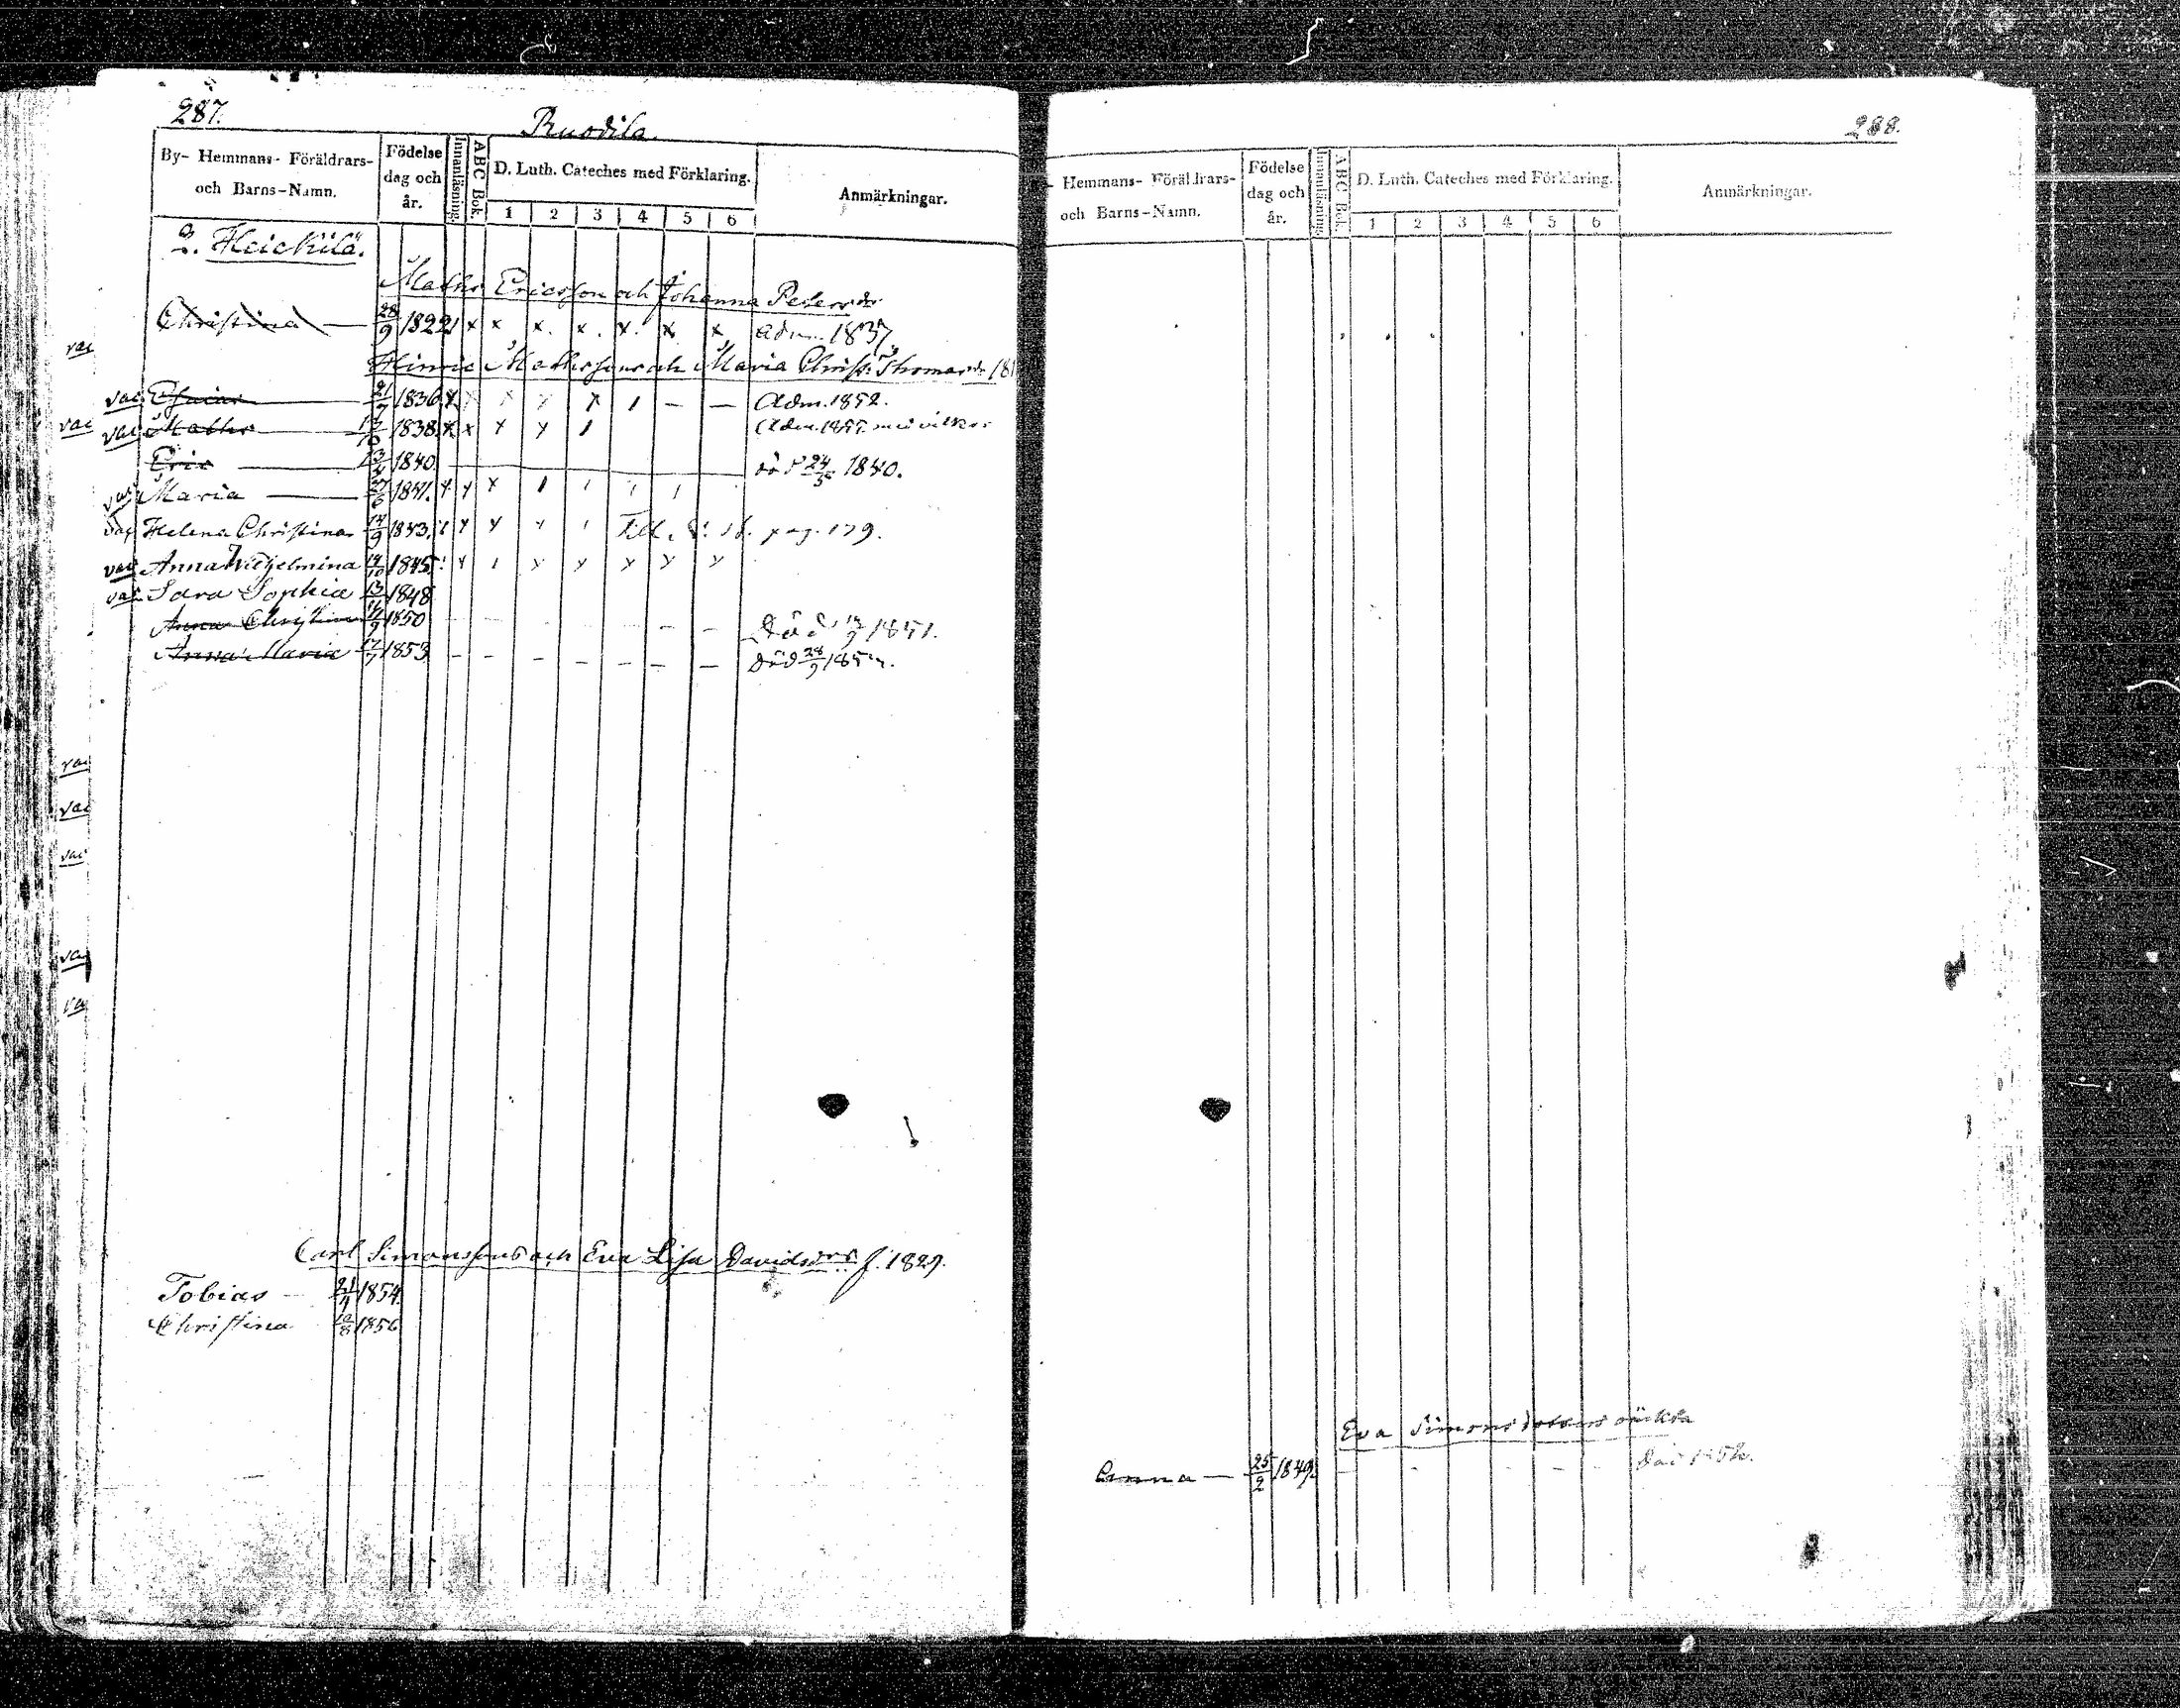 287.
Ruodila.
By- Hemmans- Föräldrars- och Barns-Namn.
Födelse dag och år.
Innanläsning.
ABC Bok.
D. Luth. Cateches med Förklaring.
1 2 3 4 5 6
Anmärkningar.
2. Heickilä.
Maths Ericsson och Johanna Petersdr
Christina — 28/9 1822 x x x. x. x. x x Adm. 1837
Hinric Mathssons och Maria Christ: Thomasdr 181
vac Esaias 21/7 1836 x x x y x 1 — — Adm. 1852.
vac Maths 1838 x x x y 1 Adm. med vilkor
Eric 1840. död 24/5 1840.
vac Maria — 27/6 1841. x y x 1 1 1 1
vac Helena Christina 14/9 1843. y y y 1 pag. 179.
vac Anna Wilhelmina 14/10 1845 y 1 y y y y y
vac Sara Sophia 1848
Anna Christina 1850 — — Död 1851.
Anna Maria 17/7 1853 — — — — — — — död 28/9
Carl Simonssons och Eva Lisa Davidsdrs f. 1829.
Tobias 1854.
Christina 1856
vac
vac
vac
vac
vac
va
va
288.
- Hemmans- Föräldrars- och Barns-Namn.
Födelse dag och år.
Innanläsning.
ABC Bok.
D. Luth. Cateches med Förklaring.
1 2 3 4 5 6
Anmärkningar.
Eva Simonsdotters oäkta
Anna — 25/2 1849.